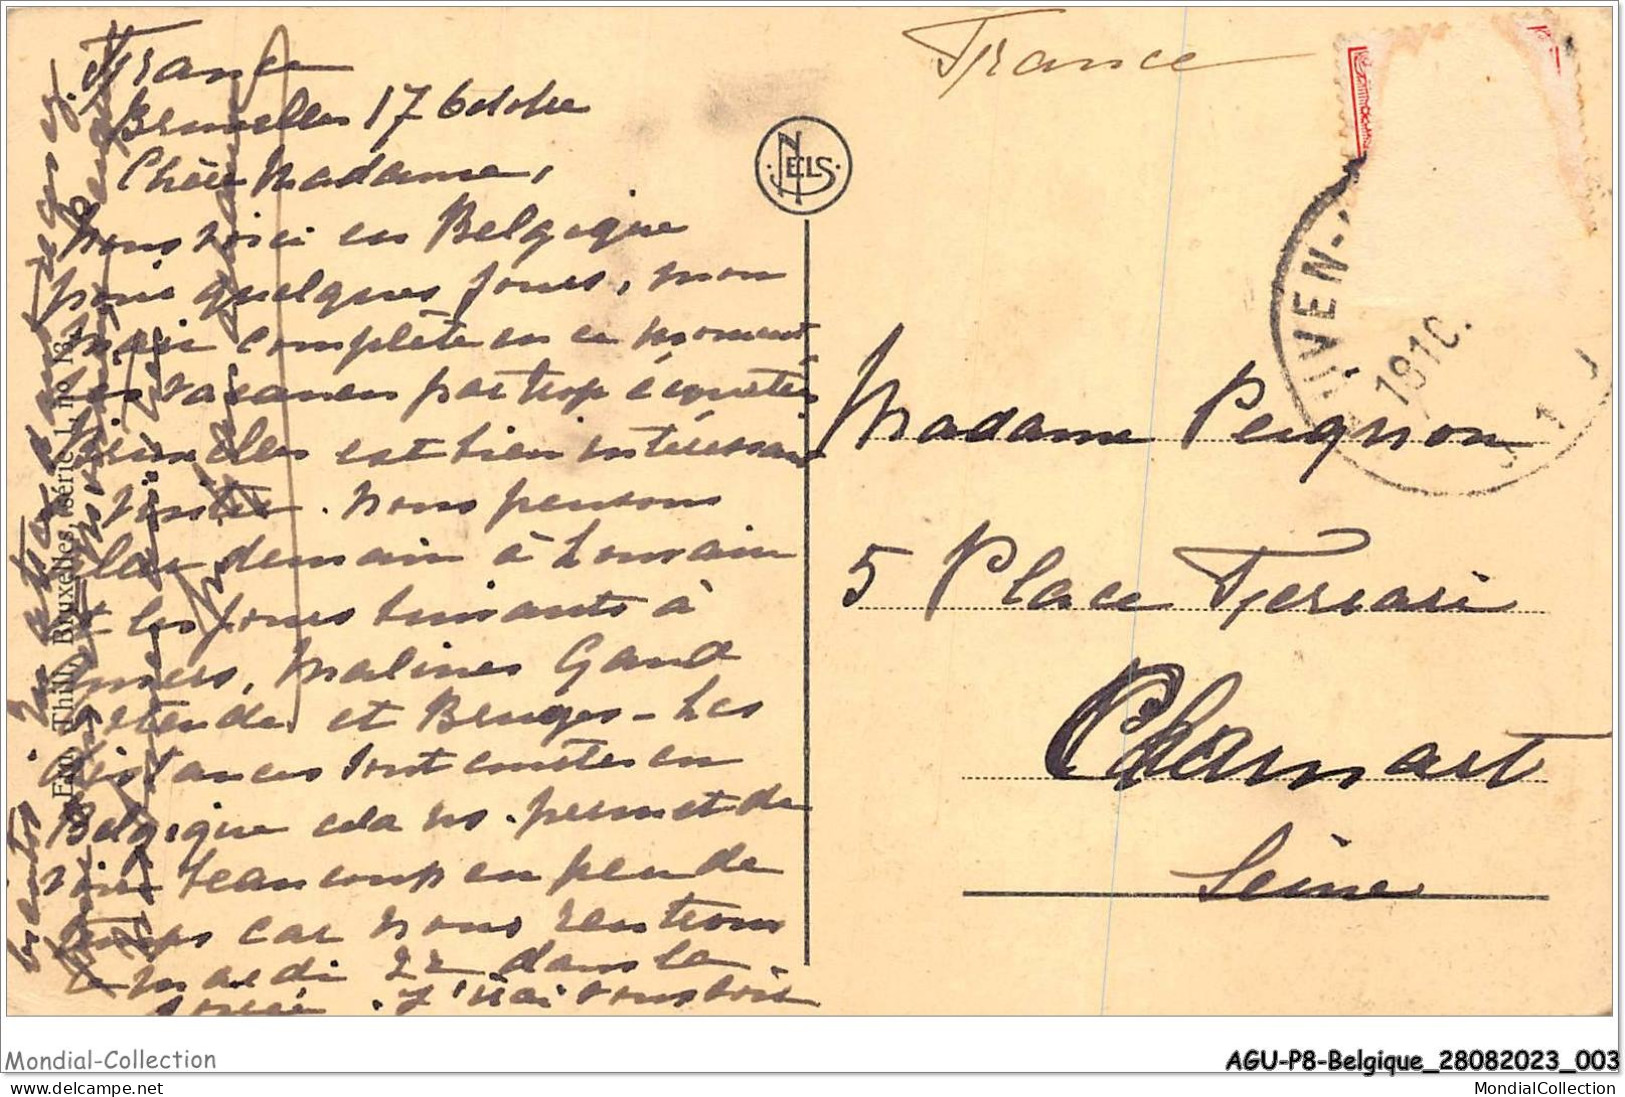 France
Bruxelles 17 Octobre
Chère Madame,
Nous voici en Belgique
pour quelques jours, mon
mari complète en ce moment
ses vacances par trop écourtées
Bruxelles est bien intéressant
visiter. Nous pensons
aller demain à Louvain
et les jours suivants à
Anvers, Malines Gand
Ostende et Bruges - Les
distances sont courtes en
Belgique cela ns. permet de
voir beaucoup en peu de
temps car nous rentrons
mardi 22 dans la
soirée. J'irai vous voir
bientôt
Ern. Thill, Bruxelles, série 1, no 13
NELS
France
UVEN
18 10
Madame Peignon
5 Place Ferrari
Clamart
Seine
Mondial-Collection
AGU-P8-Belgique_28082023_003
MondialCollection